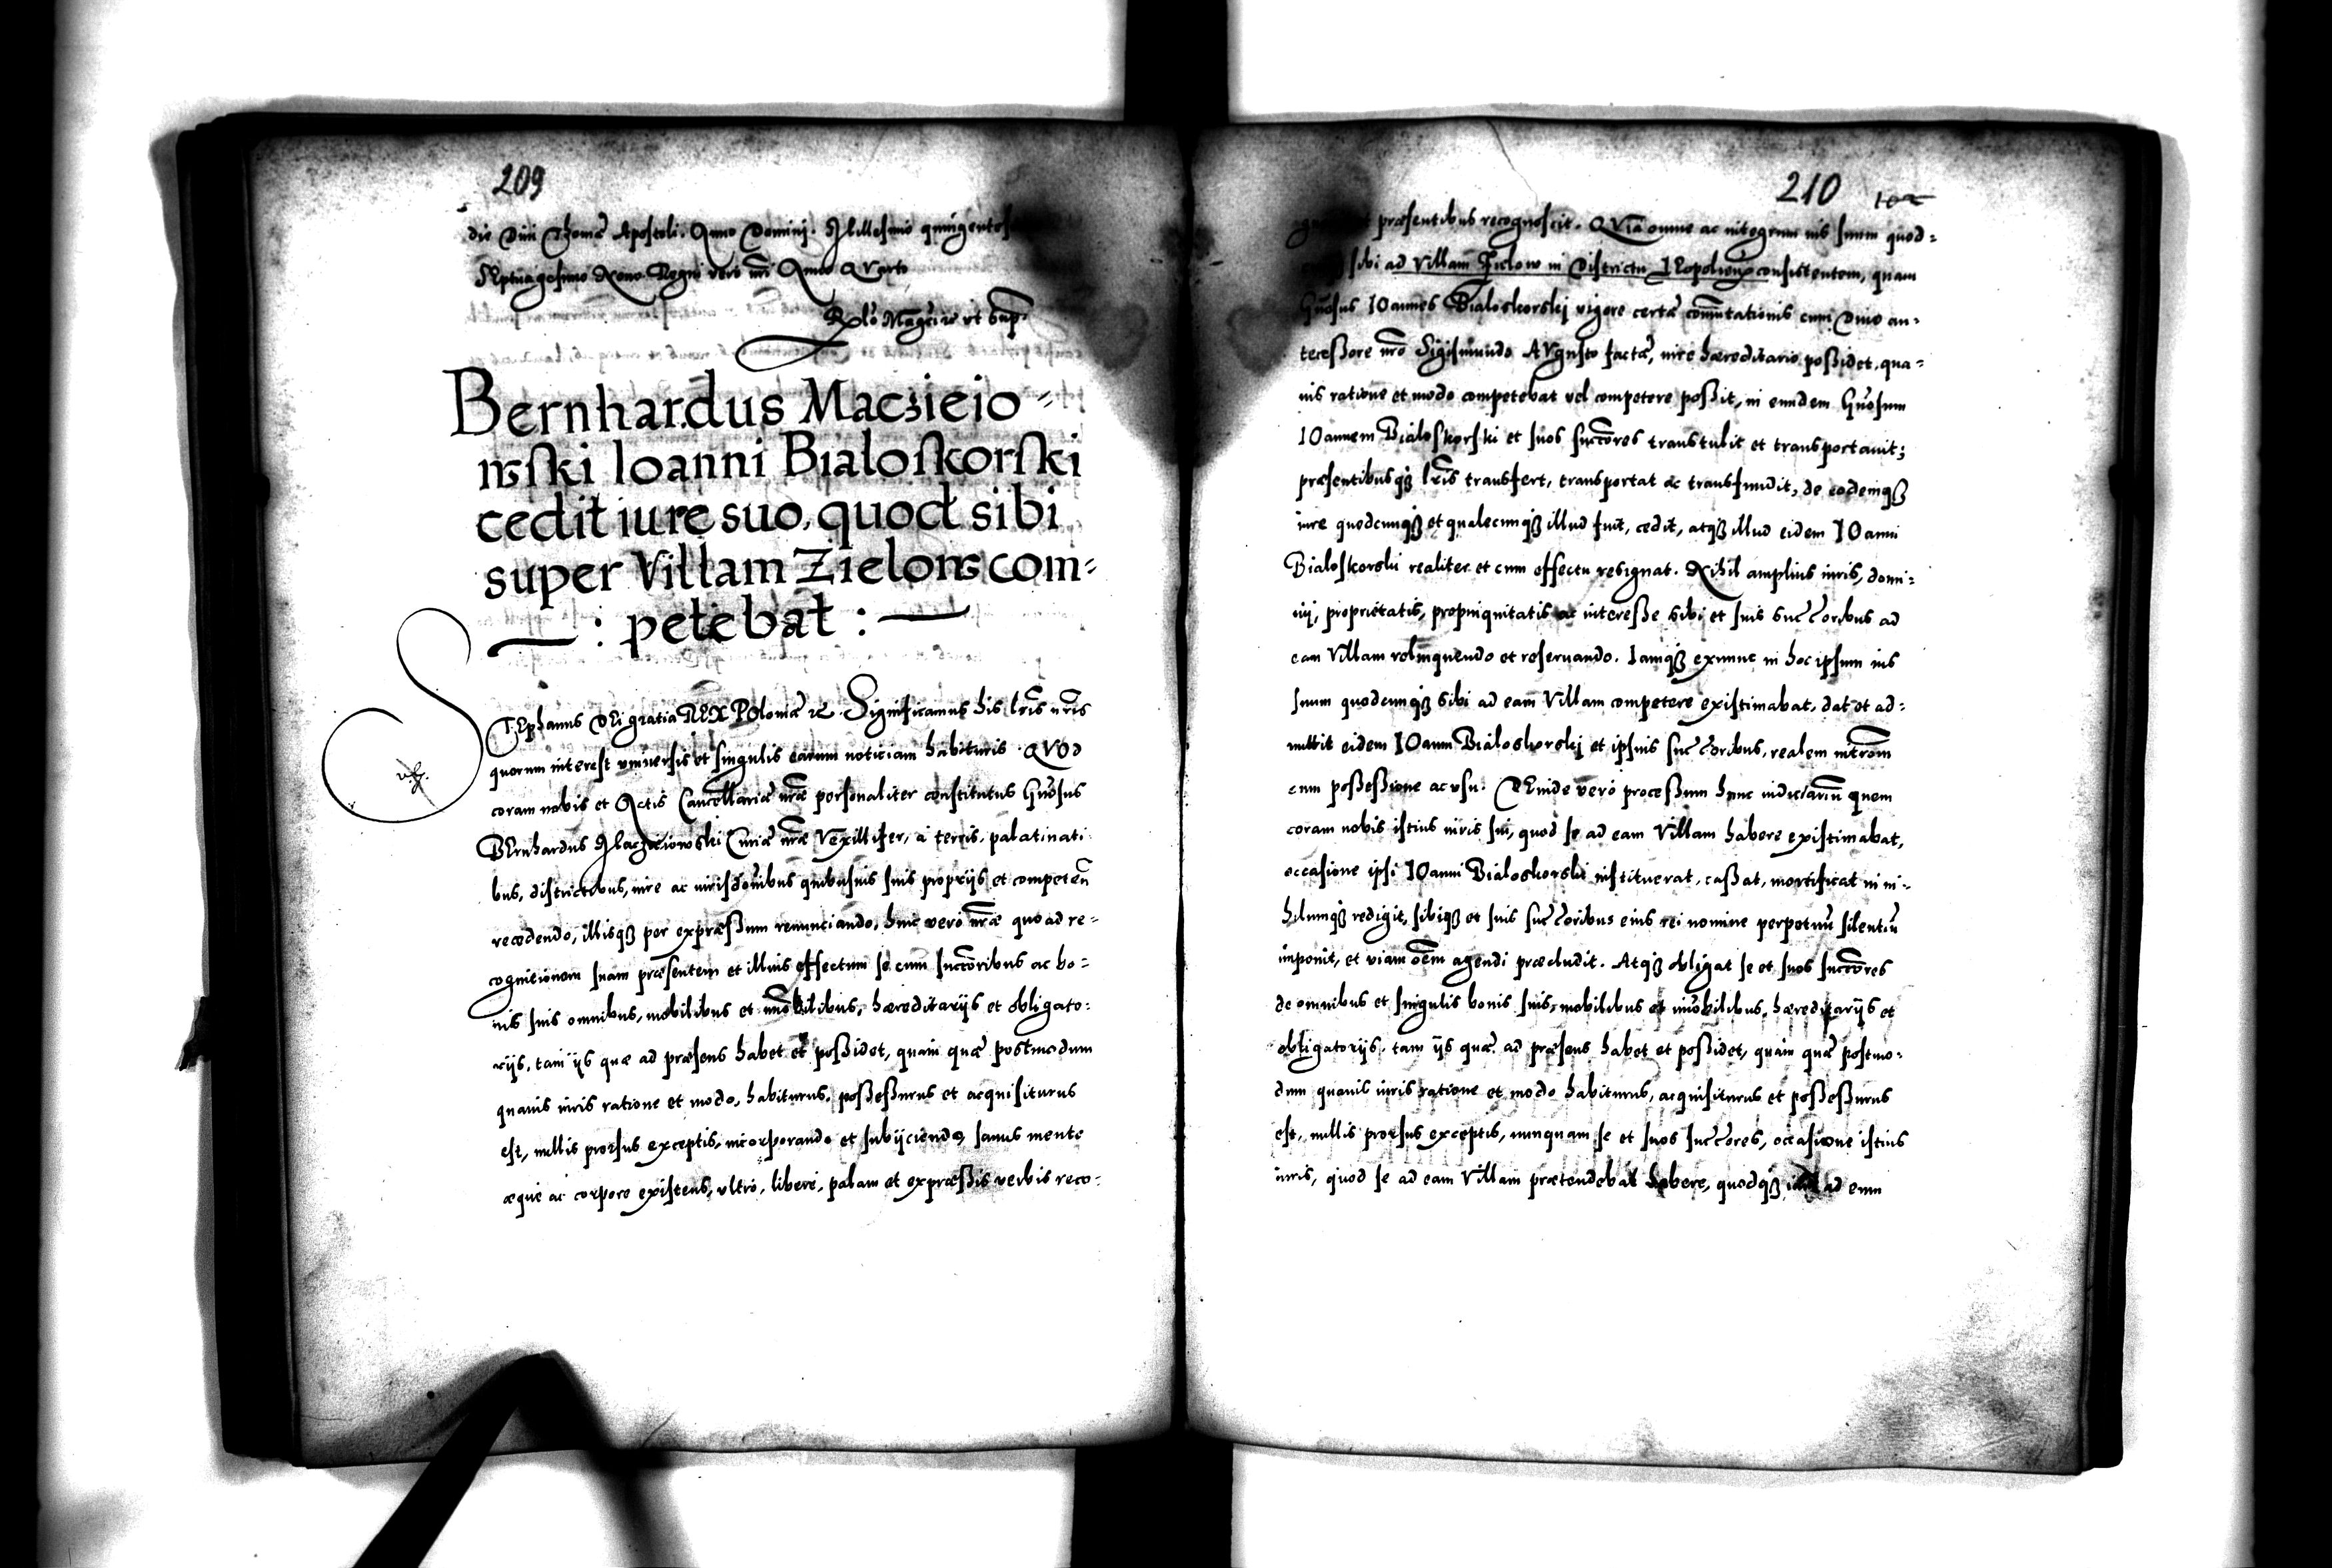 209
die Diui Thomæ Apostoli. Anno Domini. Millesimo quingentesi
SEptuagesimo Nono. Regni vero nri Anno QVarto
Rel̃o Mag͠ci etc vt sup͠
Bernhardus Maczieio-
wski Ioanni Bialoskorski
cedit iure suo, quod sibi
super Villam Zielow com-
: petebat :
STEphanus DEi gratia REX POloniæ etc. Significamus his l͠ris n͠ris
quorum interest vniuersis et singulis earum noticiam habituris QVOD
coram nobis et Actis Cancellariæ n͠ræ personaliter constitutus G͠nosus
BErnhardus Macżieiowski Curiæ n͠ræ VExillifer, a terris, palatinati
bus, districtibus, iure ac iurisdo͠nibus quibusuis suis proprijs et competen͠
recedendo, illisq3 per expræssum renunciando, huic vero n͠ræ quo ad re-
cognicionem suam præsentem et illius effectum se cum succ͠oribus ac bo-
nis suis omnibus, mobilibus et im͠obilibus, hæreditarijs et obligato-
rijs, tam ijs quæ ad præsens habet et possidet, quam quæ postmodum
quauis iuris ratione et modo, habiturus, possessurus et acquisiturus
est, nullis prorsus exceptis, incorporando et subijciendo, sanus mente
æque ac corpore existens, vltro, libere, palam et expræssis verbis reco-
210
præsentibus recognoscit. QVia omne ac integrum ius suum quod-
sibi ad Villam Zielow in Districtu LEopolien͠ consistentem, quam
G͠nosus IOannes Bialoskorskj vigore certæ com͠utationis cum Diuo an-
tecessore n͠ro Sigismundo AVgusto factæ, iure hæreditario possidet, qua-
uis ratione et modo competebat vel competere possit, in eundem G͠nosum
IOannem Bialoskorski et suos succ͠ores transtulit et transportauit;
præsentibusq3 l͠ris transfert, transportat ac transfundit, de eodemq3
iure quodcunq3 et qualecunq3 illud fuit, cedit, atq3 illud eidem IOanni
Bialoskorski realiter et cum effectu resignat. Nihil amplius iuris, domi-
nij, proprietatis, propinquitatis ac interesse sibi et suis succ͠oribus ad
eam Villam relinquendo et reseruando. Iamq3 exnunc in hoc ipsum ius
suum quodcunq3 sibi ad eam Villam competere existimabat, dat et ad-
mittit eidem IOanni Bialoskorskj et ipsius succ͠oribus, realem intro͠m
cum possessione ac vsu. DEinde vero processum hunc iudiciarium͠ quem
coram nobis istius iuris sui, quod se ad eam Villam habere existimabat,
occasione ipsi IOanni Bialoskorski instituerat, cassat, mortificat in ni-
hilumq3 redigit, sibiq3 et suis succ͠oribus eius rei nomine perpetuu͠ silentiu͠
imponit, et viam o͠em agendi præcludit. Atq3 obligat se et suos succ͠ores
de omnibus et singulis bonis suis, mobilibus et im͠obilibus, hæreditarijs et
obligatorijs, tam ijs quæ ad præsens habet et possidet, quam quæ postmo-
dum quauis iuris ratione et modo habiturus, acquisiturus et possessurus
est, nullis prorsus exceptis, nunquam se et suos succ͠ores, occasione istius
iuris, quod se ad eam Villam prætendebat habere, quodq3 ad eum